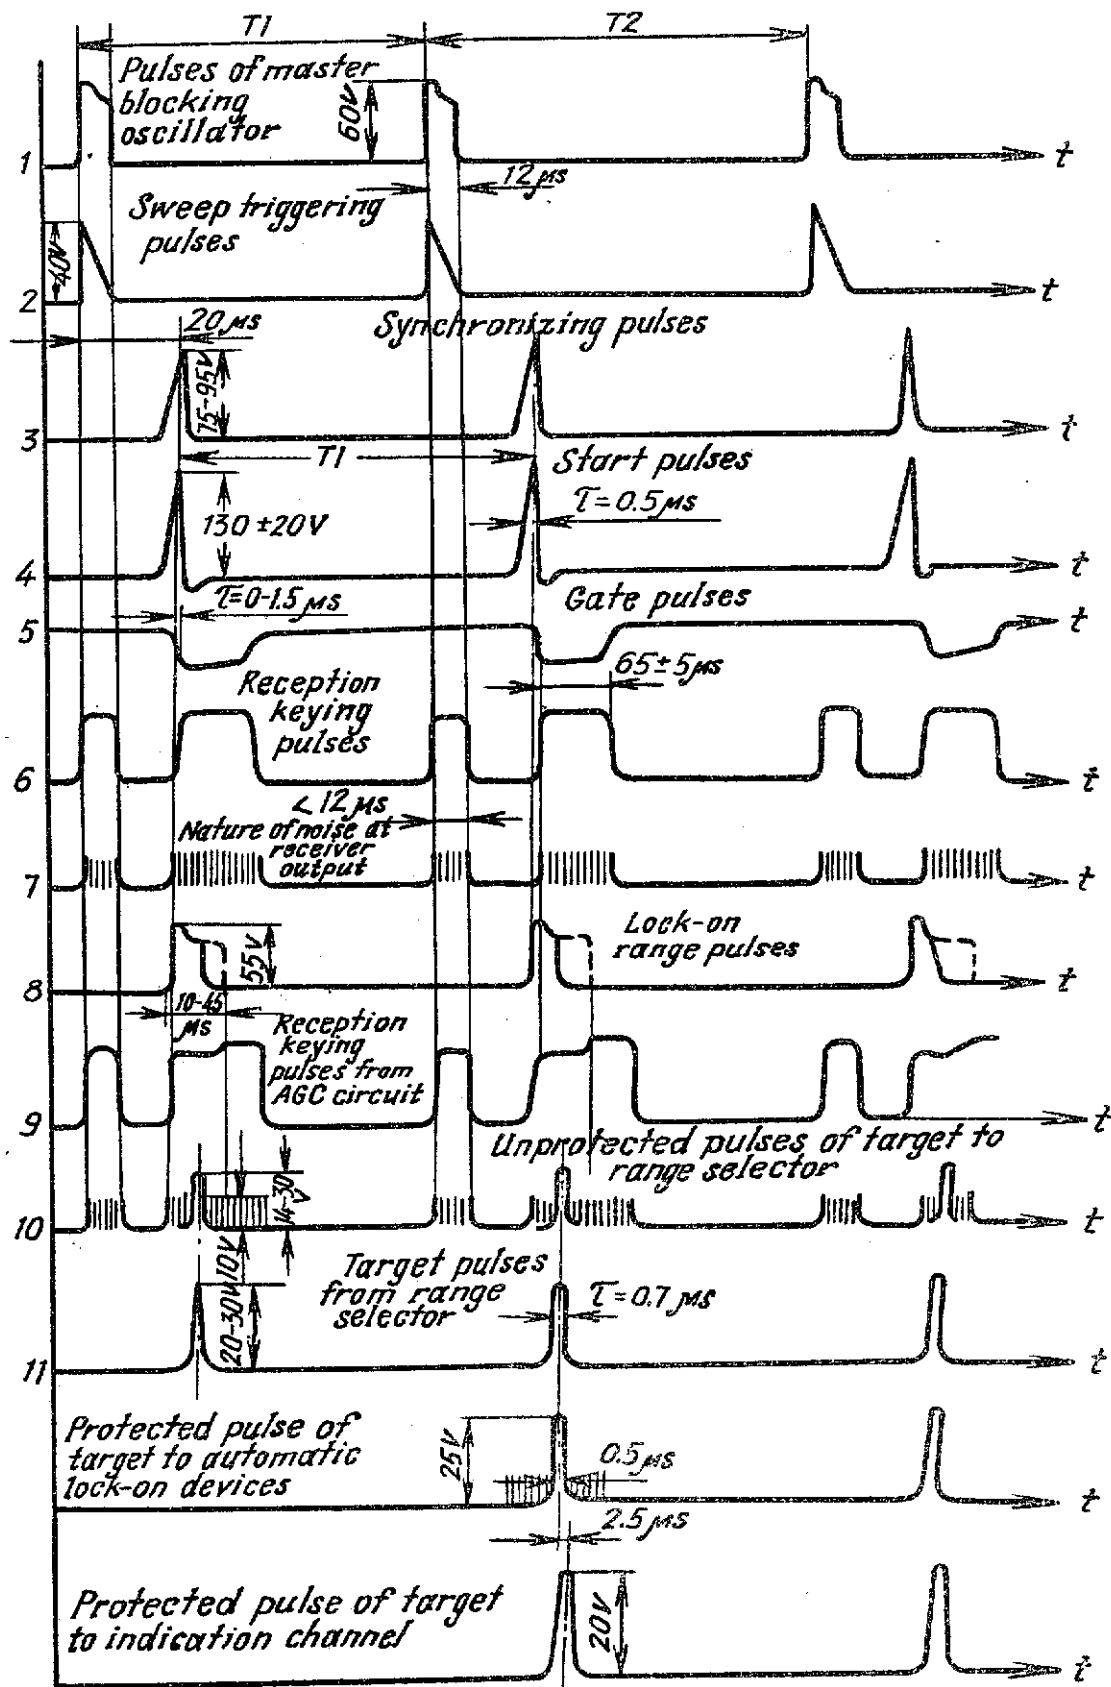 T1
T2
Pulses of master
blocking
oscillator
60V
1
t
12μs
Sweep triggering
pulses
40V
2
t
20μs
Synchronizing pulses
75-95V
3
t
T1
Start pulses
130±20V
τ=0.5μs
4
t
τ=0-1.5μs
Gate pulses
5
t
65±5μs
Reception
keying
pulses
6
t
<12μs
Nature of noise at
receiver
output
7
t
Lock-on
range pulses
55V
8
t
10-45
μs
Reception
keying
pulses from
AGC circuit
9
t
Unprotected pulses of target to
range selector
14-30V
10
t
10V
Target pulses
from range
selector
20-30V
τ=0.7μs
11
t
Protected pulse of
target to automatic
lock-on devices
25V
0.5μs
t
2.5μs
Protected pulse of target
to indication channel
20V
t